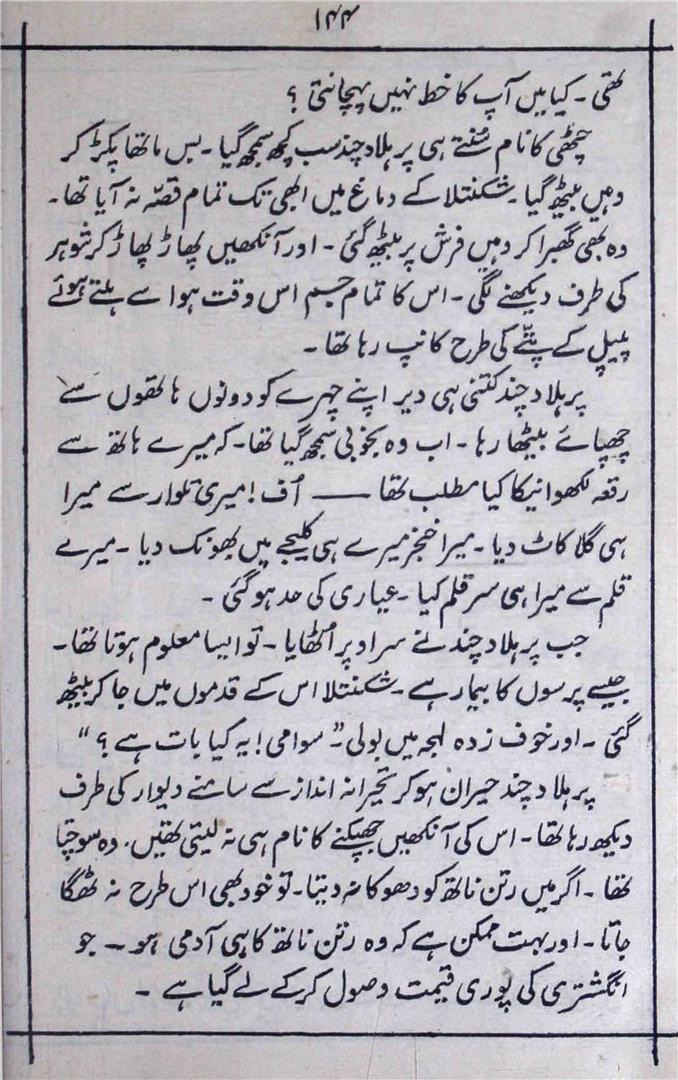 ۱۴۴
تھی ۔ کیا میں آپ کا خط نہیں پہچانتی ؟
چٹھی کا نام سُنتے ہی پرہلاد چند سب کچھ سمجھ گیا ۔ بس ماتھا پکڑ کر
وہیں بیٹھ گیا ۔ شکنتلا کے دماغ میں ابھی تک تمام قصّہ نہ آیا تھا ۔
وہ بھی گھبرا کر وہیں فرش پر بیٹھ گئی ۔ اور آنکھیں پھاڑ پھاڑ کر شوہر
کی طرف دیکھنے لگی ۔ اس کا تمام جسم اس وقت ہوا سے ہلتے ہوئے
پیپل کے پتّے کی طرح کانپ رہا تھا ۔
پرہلاد چند کتنی ہی دیر اپنے چہرے کو دونوں ہاتھوں سے
چھپائے بیٹھا رہا ۔ اب وہ بخوبی سمجھ گیا تھا ۔ کہ میرے ہاتھ سے
رقعہ لکھوانیکا کیا مطلب تھا ــــ اُف ! میری تلوار سے میرا
ہی گلا کاٹ دیا ۔ میرا خنجر میرے ہی کلیجے میں بھونک دیا ۔ میرے
قلم سے میرا ہی سر قلم کیا ۔ عیاری کی حد ہو گئی ۔
جب پرہلاد چند نے سر اوپر اُٹھایا ۔ تو ایسا معلوم ہوتا تھا ۔
جیسے برسوں کا بیمار ہے ۔ شکنتلا اس کے قدموں میں جا کر بیٹھ
گئی ۔ اور خوف زدہ لہجہ میں بولی ۔ " سوامی ! یہ کیا بات ہے ؟ "
پرہلاد چند حیران ہو کر تحیرانہ انداز سے سامنے دیوار کی طرف
دیکھ رہا تھا ۔ اس کی آنکھیں جھپکنے کا نام ہی نہ لیتی تھیں ۔ وہ سوچتا
تھا ۔ اگر میں رتن ناتھ کو دھوکا نہ دیتا ۔ تو خود بھی اس طرح نہ ٹھگا
جاتا ۔ اور بہت ممکن ہے کہ وہ رتن ناتھ کا ہی آدمی ہو ۔ جو
انگشتری کی پوری قیمت وصول کر کے لے گیا ہے ۔